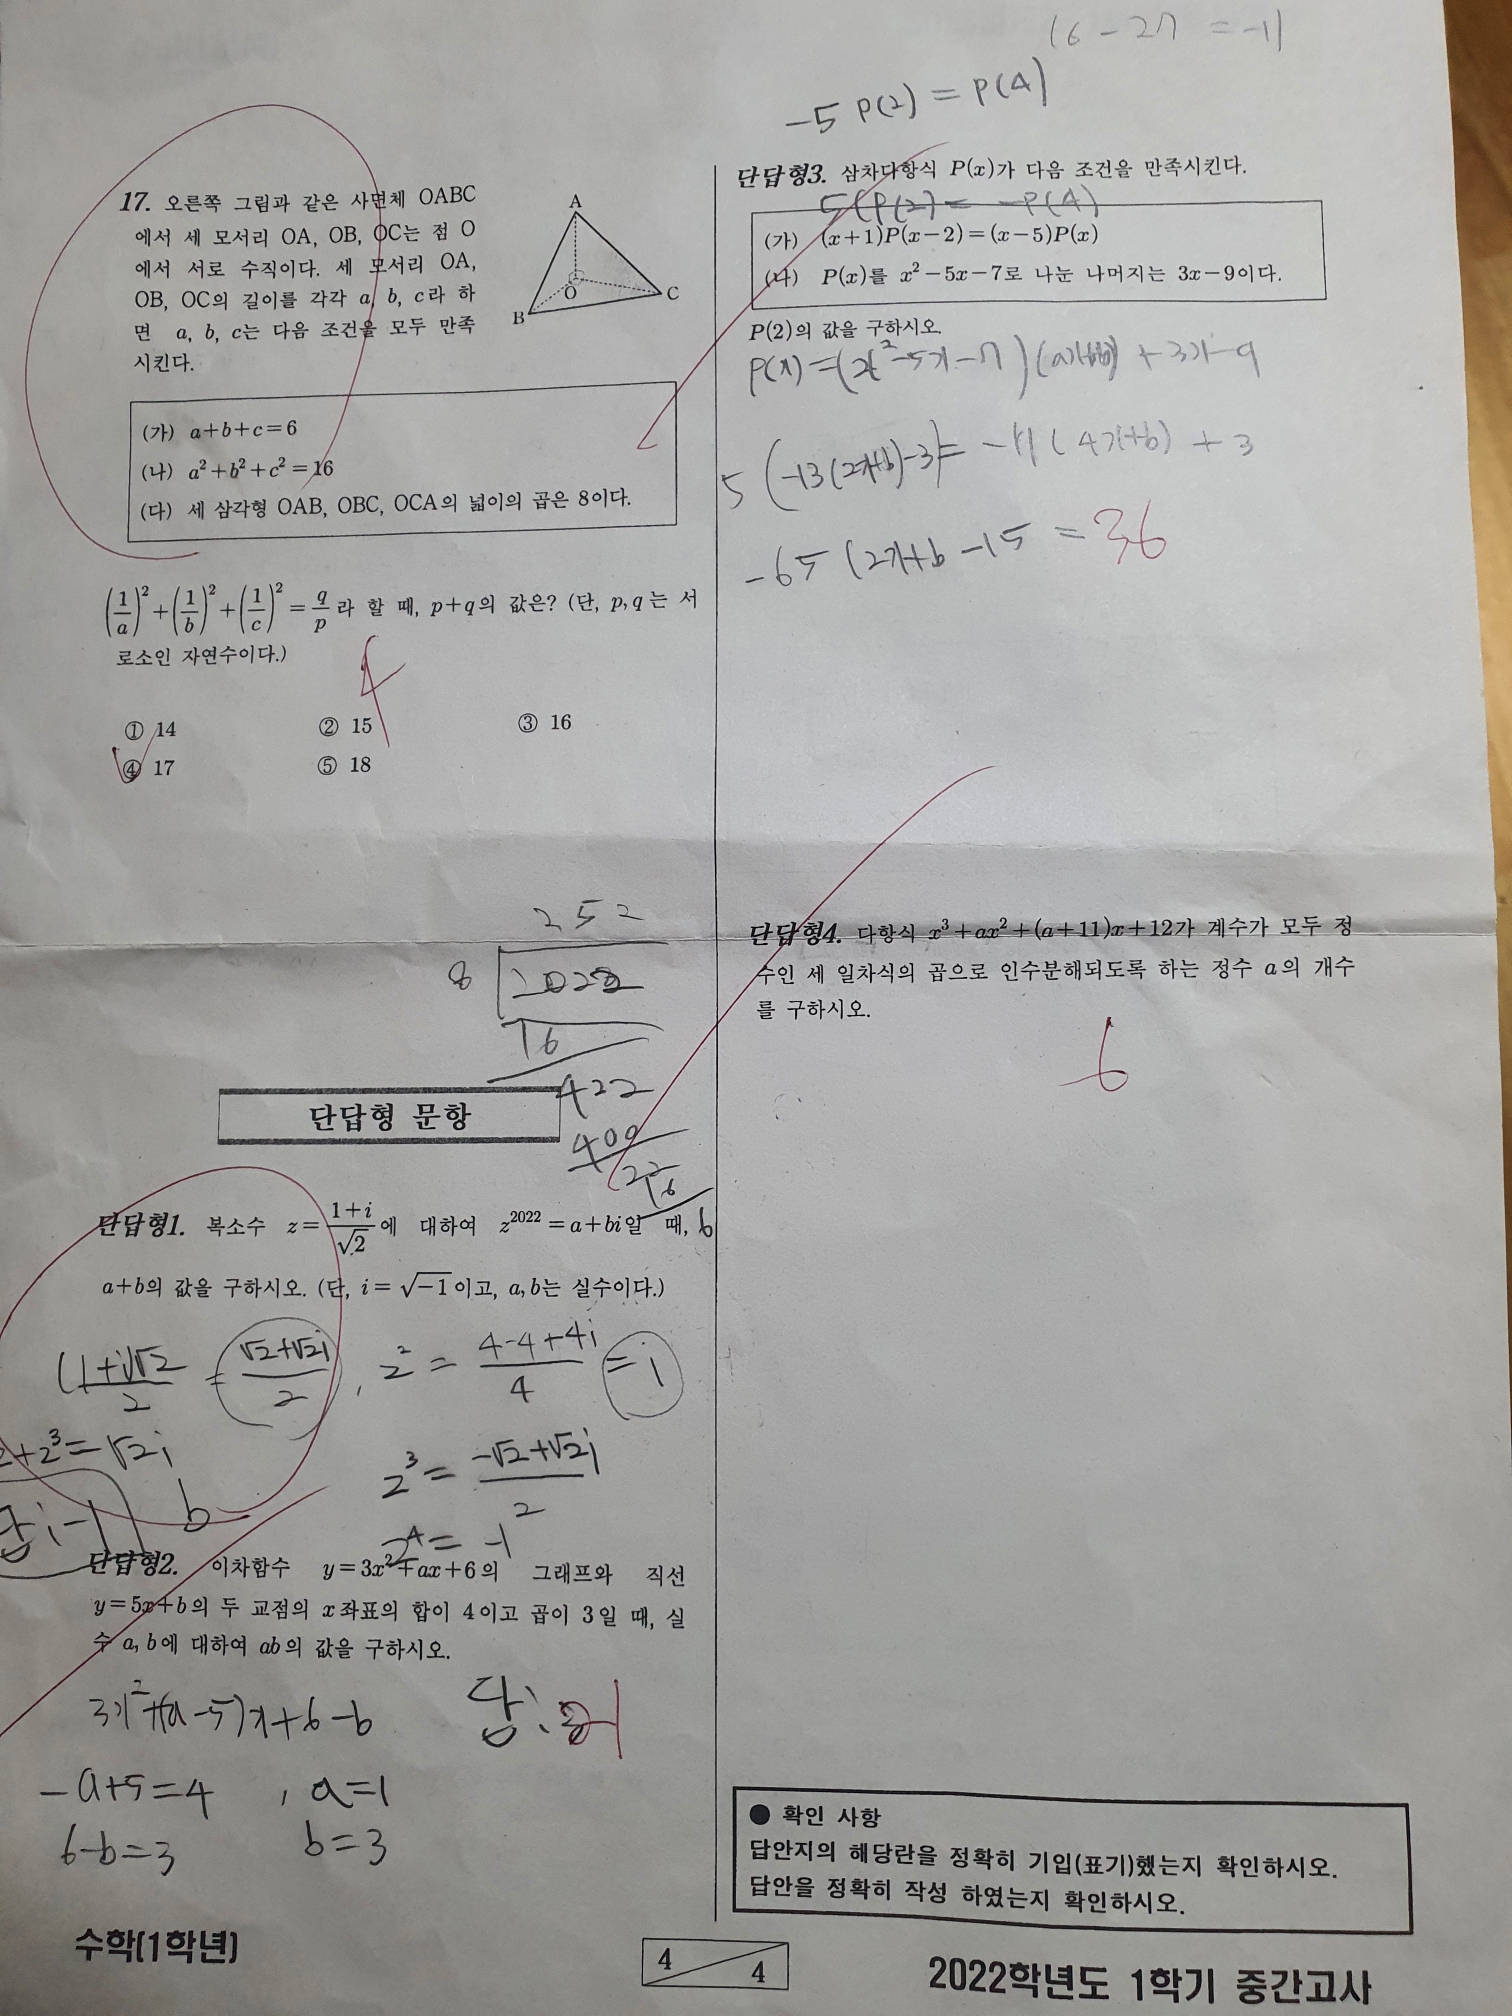 16-27 = -11
-5 P(2) = P(4)
17. 오른쪽 그림과 같은 사면체 OABC
에서 세 모서리 OA, OB, OC는 점 O
에서 서로 수직이다. 세 모서리 OA,
OB, OC의 길이를 각각 a, b, c라 하
면 a, b, c는 다음 조건을 모두 만족
시킨다.
A
O
B
C
(가) a+b+c=6
(나) a²+b²+c²=16
(다) 세 삼각형 OAB, OBC, OCA의 넓이의 곱은 8이다.
(1/a)²+(1/b)²+(1/c)²=q/p라 할 때, p+q의 값은? (단, p, q는 서
로소인 자연수이다.)
4
① 14 ② 15 ③ 16
④ 17 ⑤ 18
252
8 2022
16
422
400
22
16
6
단답형 문항
단답형1. 복소수 z=(1+i)/√2에 대하여 z²⁰²²=a+bi일 때,
a+b의 값을 구하시오. (단, i=√-1이고, a, b는 실수이다.)
(1+i)√2/2 = (√2+√2i)/2 , z² = (4-4+4i)/4 = i
z+z³=√2i
z³ = (-√2+√2i)/2
답: -1
b
z⁴ = -1
단답형2. 이차함수 y=3x²+ax+6의 그래프와 직선
y=5x+b의 두 교점의 x좌표의 합이 4이고 곱이 3일 때, 실
수 a, b에 대하여 ab의 값을 구하시오.
3x²+(a-5)x+6-b
답: 21
-a+5=4 , a=1
6-b=3 b=3
단답형3. 삼차다항식 P(x)가 다음 조건을 만족시킨다.
5(P(2) = -P(4)
(가) (x+1)P(x-2)=(x-5)P(x)
(나) P(x)를 x²-5x-7로 나눈 나머지는 3x-9이다.
P(2)의 값을 구하시오.
P(x)=(x²-5x-7)(ax+b) + 3x-9
5(-13(2x+b)-3)= -11(4x+b) + 3
-65(2x+b -15 = 36
단답형4. 다항식 x³+ax²+(a+11)x+12가 계수가 모두 정
수인 세 일차식의 곱으로 인수분해되도록 하는 정수 a의 개수
를 구하시오.
6
● 확인 사항
답안지의 해당란을 정확히 기입(표기)했는지 확인하시오.
답안을 정확히 작성 하였는지 확인하시오.
수학(1학년)
4/4
2022학년도 1학기 중간고사